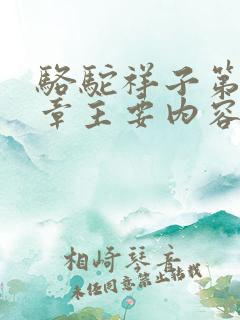 骆驼祥子第
章主要内容
相崎琴音
未经同意禁止转载